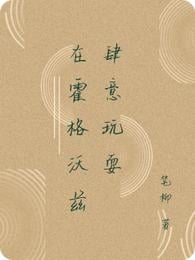 肆意玩耍
在霍格沃兹
笔柳 著